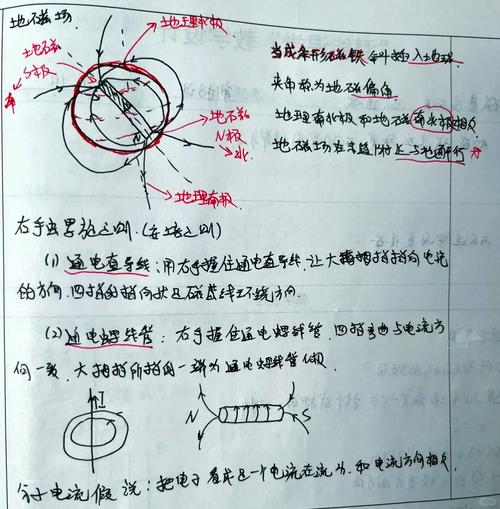 地磁场
地理北极
地磁
S极
南
地磁
N极
北
地理南极
当成条形磁铁斜插入地球
夹角称为地磁偏角
地理南北极和地磁南北极相反
地磁场在赤道附近与地面平行
右手螺旋定则(安培定则)
(1) 通电直导线:用右手握住通电直导线,让大拇指指向电流
的方向,四指的指向就是磁感线环绕方向.
(2) 通电螺线管:右手握住通电螺线管,四指弯曲与电流方
向一致,大拇指所指的一端为通电螺线管N极.
I
N
S
分子电流假说:把电子看成是一个电流在流动,和电流方向相反.